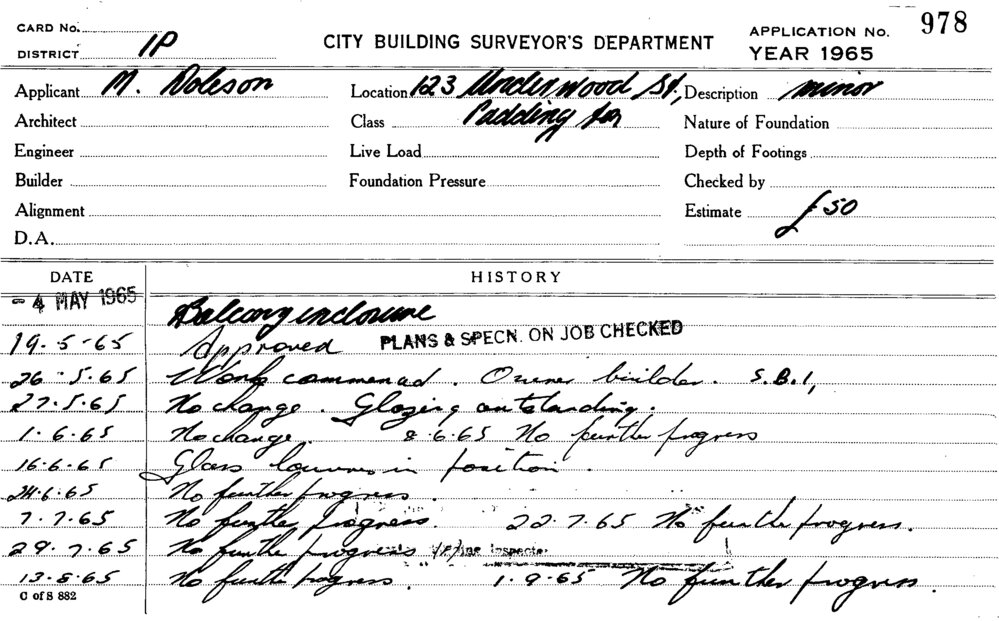 CARD No.
DISTRICT 1P
CITY BUILDING SURVEYOR'S DEPARTMENT
APPLICATION No. 978
YEAR 1965
Applicant M. Doleson
Location 123 Underwood St., Paddington
Description minor
Architect
Class
Nature of Foundation
Engineer
Live Load
Depth of Footings
Builder
Foundation Pressure
Checked by
Alignment
Estimate £50
D.A.
DATE HISTORY
- 4 MAY 1965 Balcony enclosure
19.5-65 Approved PLANS & SPECN. ON JOB CHECKED
26.5.65 Work commenced. Owner builder. S.B.1,
27.5.65 No change. Glazing outstanding.
1.6.65 No change. 8.6.65 No further progress
16.6.65 Glass louvres in position.
24.6.65 No further progress.
7.7.65 No further progress. 22.7.65 No further progress.
29.7.65 No further progress
13.8.65 No further progress. 1.9.65 No further progress.
C of S 882